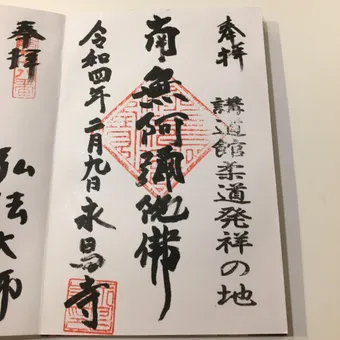 奉拝
講道館柔道発祥の地
南無阿弥陀佛
令和四年二月九日
永昌寺
奉拝
弘法大师